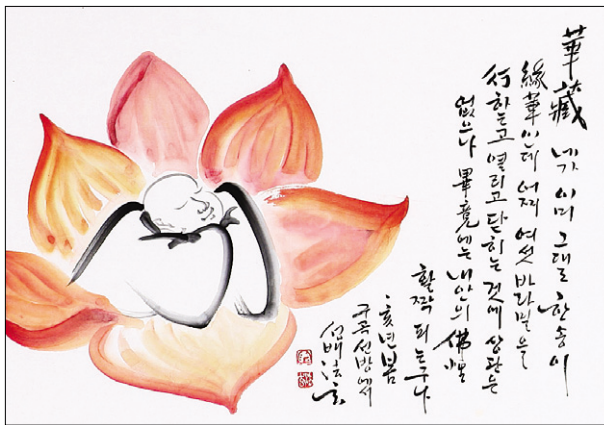 華藏 네가 이미 그대로 한송이
緣華인데 어찌 여섯 바라밀을
行하는고 열리고 닫히는 것에 상관은
없으나 畢竟에는 내안의 佛性
활짝 피는구나
亥년봄
구곡선방에서